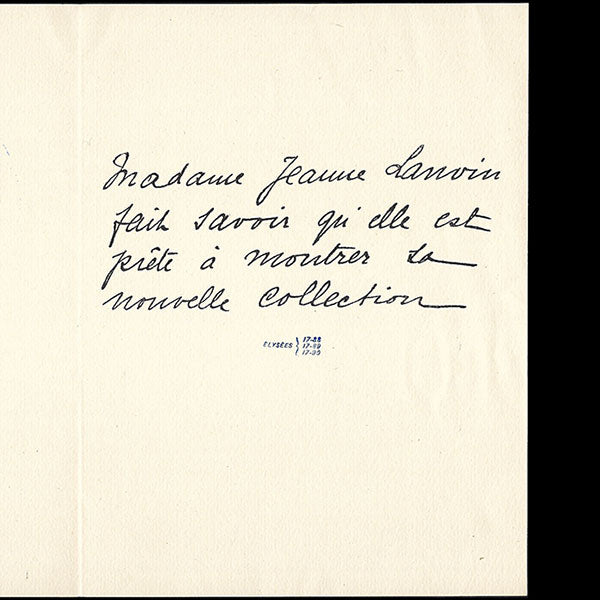 Madame Jeanne Lanvin
fait savoir qu'elle est
prête à montrer sa
nouvelle collection
ELYSÉES { 17-88
17-89
17-90